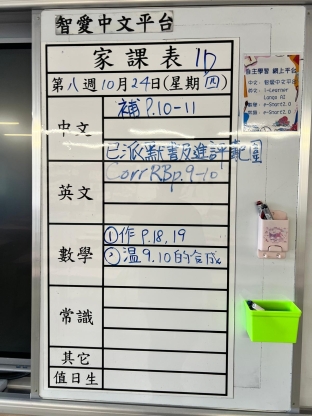 智愛中文平台
家課表 1D
第八週10月24日(星期四)
中文
補 P.10-11
已派默書及進評範圍
英文
Corr RB p.9-10
數學
①作 P.18, 19
②温 9.10的合成
常識
其它
值日生
自主學習 網上平台
中文：智愛中文平台
英文：i-Learner
數學：e-Smart2.0
常識：e-Smart2.0